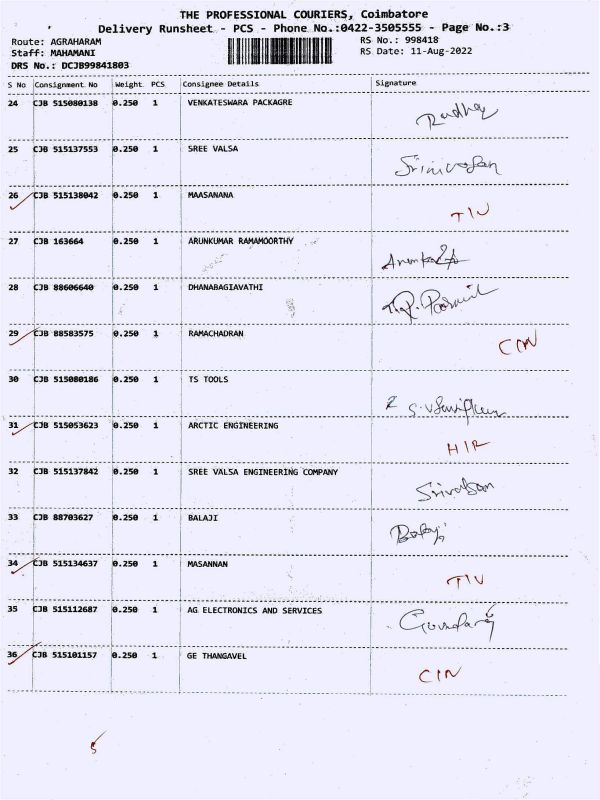 THE PROFESSIONAL COURIERS, Coimbatore
Delivery Runsheet - PCS - Phone No.:0422-3505555 - Page No.:3
Route: AGRAHARAM
RS No.: 998418
Staff: MAHAMANI
RS Date: 11-Aug-2022
DRS No.: DCJB99841803
S No Consignment No Weight PCS Consignee Details Signature
24 CJB 515080138 0.250 1 VENKATESWARA PACKAGRE
25 CJB 515137553 0.250 1 SREE VALSA Srinivasan
26 CJB 515138042 0.250 1 MAASANANA TIV
27 CJB 163664 0.250 1 ARUNKUMAR RAMAMOORTHY
28 CJB 88606640 0.250 1 DHANABAGIAVATHI
29 CJB 88583575 0.250 1 RAMACHADRAN CIN
30 CJB 515080186 0.250 1 TS TOOLS
31 CJB 515053623 0.250 1 ARCTIC ENGINEERING HIR
32 CJB 515137842 0.250 1 SREE VALSA ENGINEERING COMPANY
33 CJB 88703627 0.250 1 BALAJI
34 CJB 515134637 0.250 1 MASANNAN TIV
35 CJB 515112687 0.250 1 AG ELECTRONICS AND SERVICES
36 CJB 515101157 0.250 1 GE THANGAVEL CIN
5